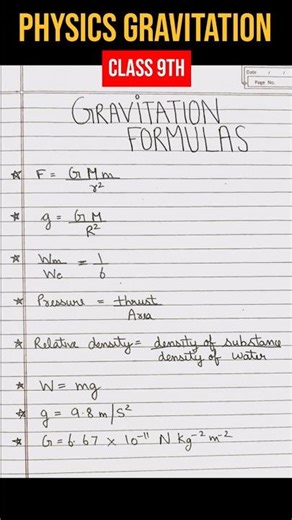 PHYSICS GRAVITATION
CLASS 9TH
Date / /
Page No.
GRAVITATION
FORMULAS
☆ F = G M m / r²
☆ g = G M / R²
☆ Wm / We = 1 / 6
☆ Pressure = thrust / Area
☆ Relative density = density of substance / density of water
☆ W = mg
☆ g = 9.8 m/S²
☆ G = 6.67 × 10⁻¹¹ N kg⁻² m⁻²